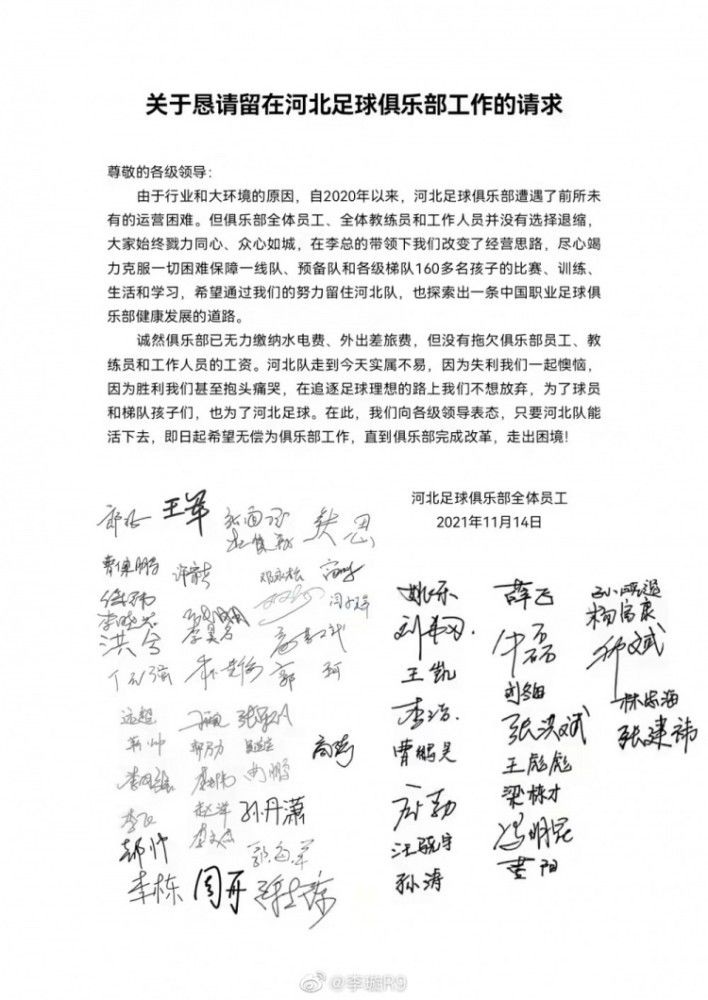 关于恳请留在河北足球俱乐部工作的请求
尊敬的各级领导：
由于行业和大环境的原因，自2020年以来，河北足球俱乐部遭遇了前所未
有的运营困难。但俱乐部全体员工、全体教练员和工作人员并没有选择退缩，
大家始终戮力同心、众心如城，在李总的带领下我们改变了经营思路，尽心竭
力克服一切困难保障一线队、预备队和各级梯队160多名孩子的比赛、训练、
生活和学习，希望通过我们的努力留住河北队，也探索出一条中国职业足球俱
乐部健康发展的道路。
诚然俱乐部已无力缴纳水电费、外出差旅费，但没有拖欠俱乐部员工、教
练员和工作人员的工资。河北队走到今天实属不易，因为失利我们一起懊恼，
因为胜利我们甚至抱头痛哭，在追逐足球理想的路上我们不想放弃，为了球员
和梯队孩子们，也为了河北足球。在此，我们向各级领导表态，只要河北队能
活下去，即日起希望无偿为俱乐部工作，直到俱乐部完成改革，走出困境！
河北足球俱乐部全体员工
2021年11月14日
王军
姚乐
薛飞
杨富康
王凯
李浩
张洪斌
林志海
张建祎
曹鹏昊
王彪彪
梁栋才
孙丹潇
冯明昆
孙涛
黄阳
李栋
周开
@李璇R9